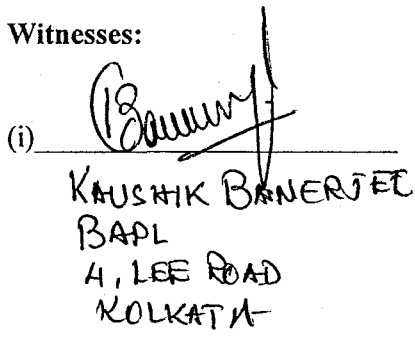 Witnesses:
(i)
KAUSHIK BANERJEE
BAPL
4, LEE ROAD
KOLKATA